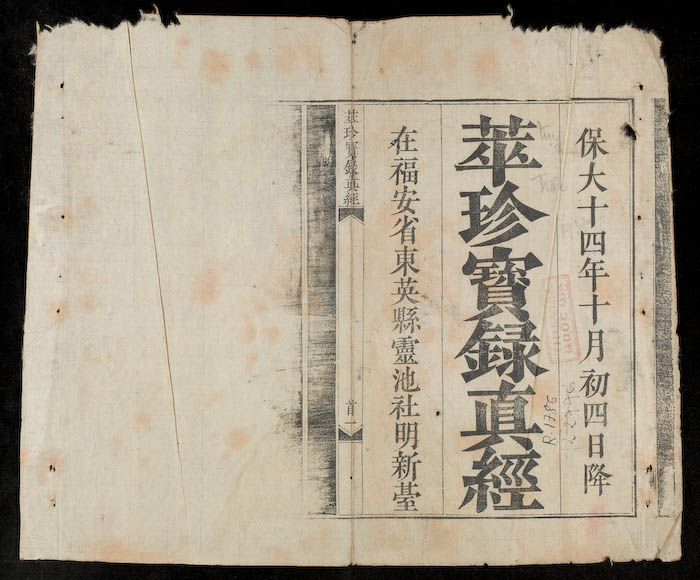 保大十四年十月初四日降
萃珍寶録真經
在福安省東英縣靈池社明新臺
萃珍寶録真經
首一
R1786